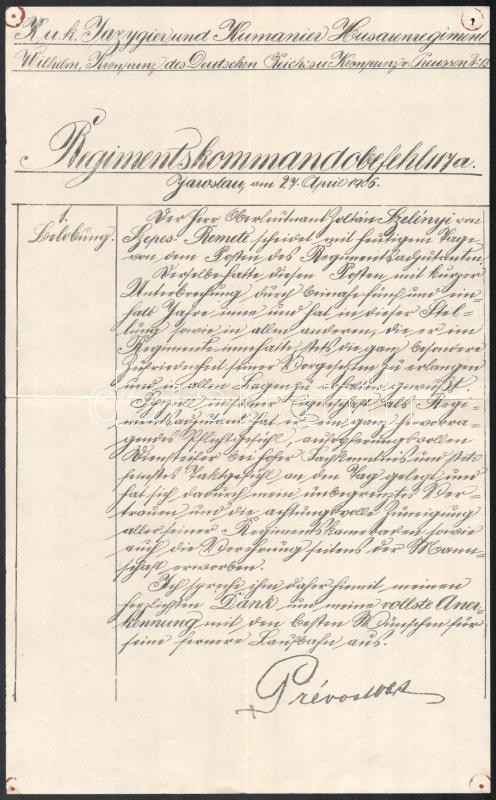 K.u.k. Jazygier und Kumanier Husarenregiment
Wilhelm, Kronprinz des Deutschen Reichs u. Kronprinz v. Preussen №: 13
Regimentskommandobefehl
Jaroslau, am 27. April 1906.
1.
Belobung.
Der Herr Oberleutnant Zoltán Szelényi von
Szepes-Remete scheidet mit heutigem Tage
von dem Posten des Regimentsadjutanten.
Derselbe hatte diesen Posten mit kurzer
Unterbrechung durch beinahe fünf und ein-
halb Jahre inne und hat in dieser Stel-
lung sowie in allen anderen, die er im
Regimente innehatte stets die ganz besondere
Zufriedenheit seiner Vorgesetzten zu erlangen
und in allen Lagen zu erhalten gewußt.
Speziell in seiner Eigenschaft als Regi-
mentsadjutant hat er ein ganz hervorra-
gendes Pflichtgefühl, aufopferungsvollen
Diensteifer bei hoher Fachkenntnis und stets
feinstes Taktgefühl an den Tag gelegt und
hat sich dadurch mein unbegrenztes Ver-
trauen und die achtungsvolle Zuneigung
aller seiner Regimentskameraden sowie
auch die Verehrung seitens der Mann-
schaft erworben.
Ich spreche ihm daher hiemit meinen
herzlichsten Dank und meine vollste Aner-
kennung mit den besten Wünschen für
seine fernere Laufbahn aus.